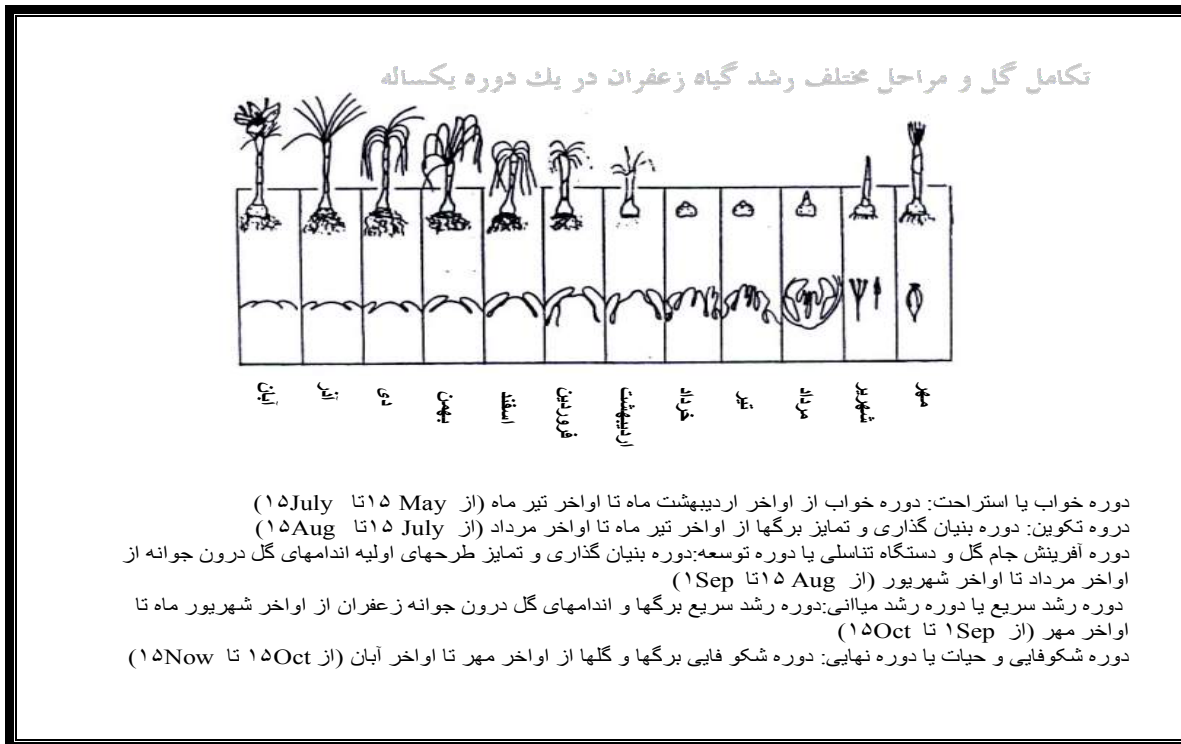 تكامل گل و مراحل مختلف رشد گیاه زعفران در یك دوره یكساله
مهر شهریور مرداد تیر خرداد اردیبهشت فروردین اسفند بهمن دی آذر آبان
دوره خواب یا استراحت: دوره خواب از اواخر اردیبهشت ماه تا اواخر تیر ماه (از ۱۵ May تا ۱۵July)
دروه تکوین: دوره بنیان گذاری و تمایز برگها از اواخر تیر ماه تا اواخر مرداد (از ۱۵ July تا ۱۵Aug)
دوره آفرینش جام گل و دستگاه تناسلی یا دوره توسعه:دوره بنیان گذاری و تمایز طرحهای اولیه اندامهای گل درون جوانه از
اواخر مرداد تا اواخر شهریور (از ۱۵ Aug تا ۱Sep)
دوره رشد سریع یا دوره رشد میاانی:دوره رشد سریع برگها و اندامهای گل درون جوانه زعفران از اواخر شهریور ماه تا
اواخر مهر (از ۱Sep تا ۱۵Oct)
دوره شکوفایی و حیات یا دوره نهایی: دوره شکو فایی برگها و گلها از اواخر مهر تا اواخر آبان (از ۱۵Oct تا ۱۵Now)